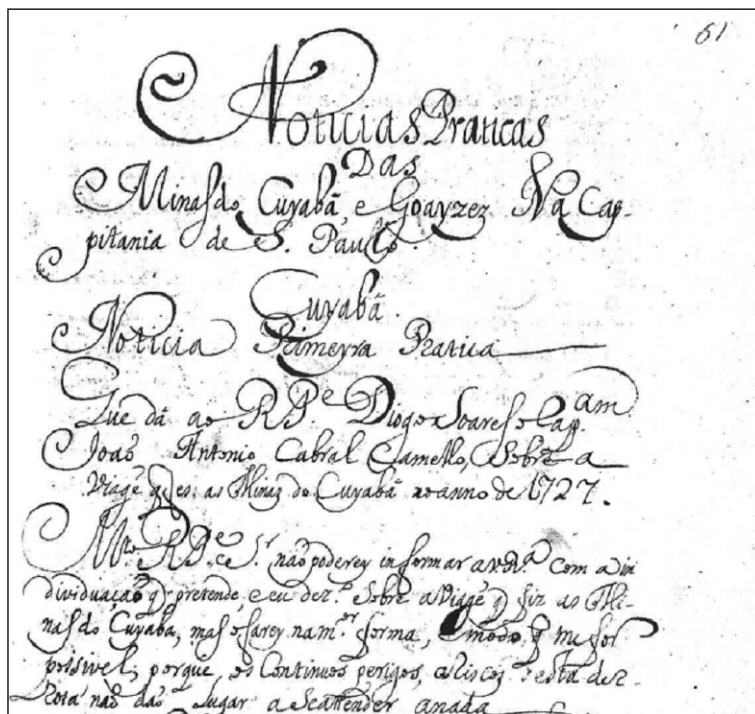 61
Noticias Praticas
Das
Minas do Cuyabâ, e Goayzez Na Cap-
pitania de S. Paulo.
Cuyabâ.
Noticia Primeyra Pratica
Que dâ ao R. P.e Diogo Soares o Cap.am
João Antonio Cabral Camello, Sobre a
Viagẽ q̃ fes as Minas do Cuyabâ no anno de 1727.
M.to R. P.e S.r não poderey informar a VR.a com a in
dividuação q̃ pretende, e eu dez.o Sobre a Viagẽ q̃ fiz as Mi-
nas do Cuyabâ, mas o farey na m.or forma, e modo q̃ me for
possivel; porque os Continuos perigos, e riscos desta der-
rota não dão lugar a Se attender a nada